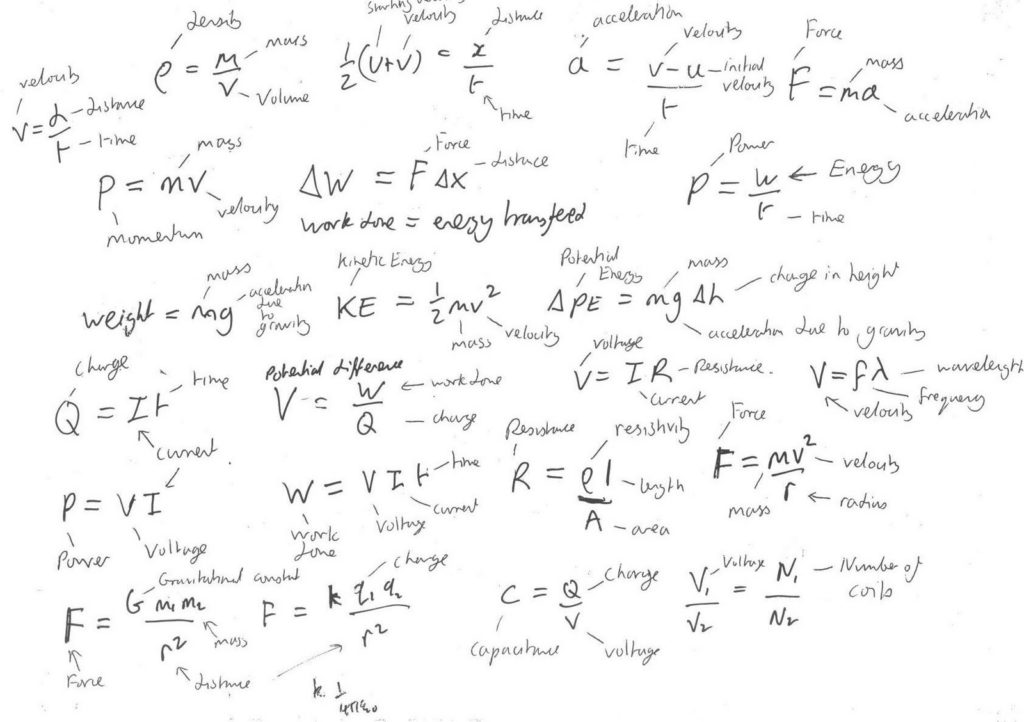 velocity
v = d/t
distance
time
density
ρ = m/V
mass
Volume
velocity
½(u+v) = x/t
distance
time
acceleration
a = v-u/t
velocity
initial velocity
time
Force
F = ma
mass
acceleration
P = mv
mass
velocity
momentum
ΔW = F Δx
Force
distance
work done = energy transfered
Power
P = W/t
Energy
time
weight = mg
mass
acceleration due to gravity
Kinetic Energy
KE = ½mv²
mass
velocity
Potential Energy
ΔPE = mg Δh
mass
change in height
acceleration due to gravity
charge
Q = It
time
current
Potential difference
V = W/Q
work done
charge
voltage
V = IR
Resistance.
current
V = fλ
wavelength
frequency
velocity
P = VI
Power
Voltage
W = VIt
time
current
Voltage
work done
Resistance
R = ρl/A
resistivity
length
area
Force
F = mv²/r
velocity
radius
mass
Gravitational constant
F = G m₁m₂/r²
mass
Force
distance
F = k q₁q₂/r²
charge
k. 1/4πε₀
C = Q/V
Charge
voltage
capacitance
V₁/V₂ = N₁/N₂
Voltage
Number of coils